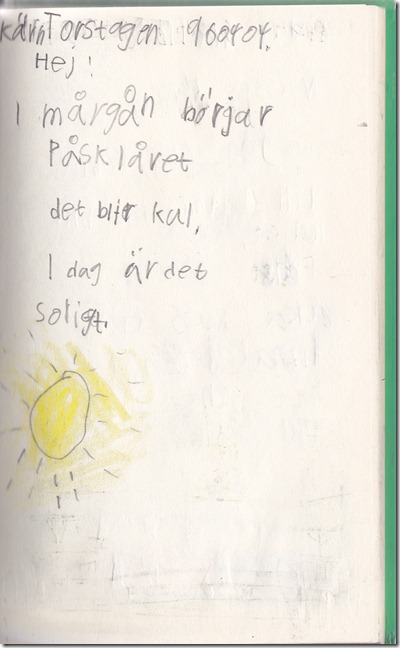 Karin Torstagen 960404.
Hej!
I mårgån börjar
Påsklåret
det blir kul.
I dag är det
soligt.